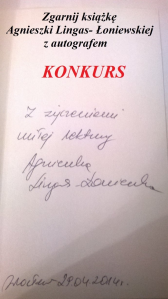 Zgarnij książkę
Agnieszki Lingas- Łoniewskiej
z autografem
KONKURS
Z życzeniami
miłej lektury
Agnieszka
Lingas Łoniewska
29.04.2014r.